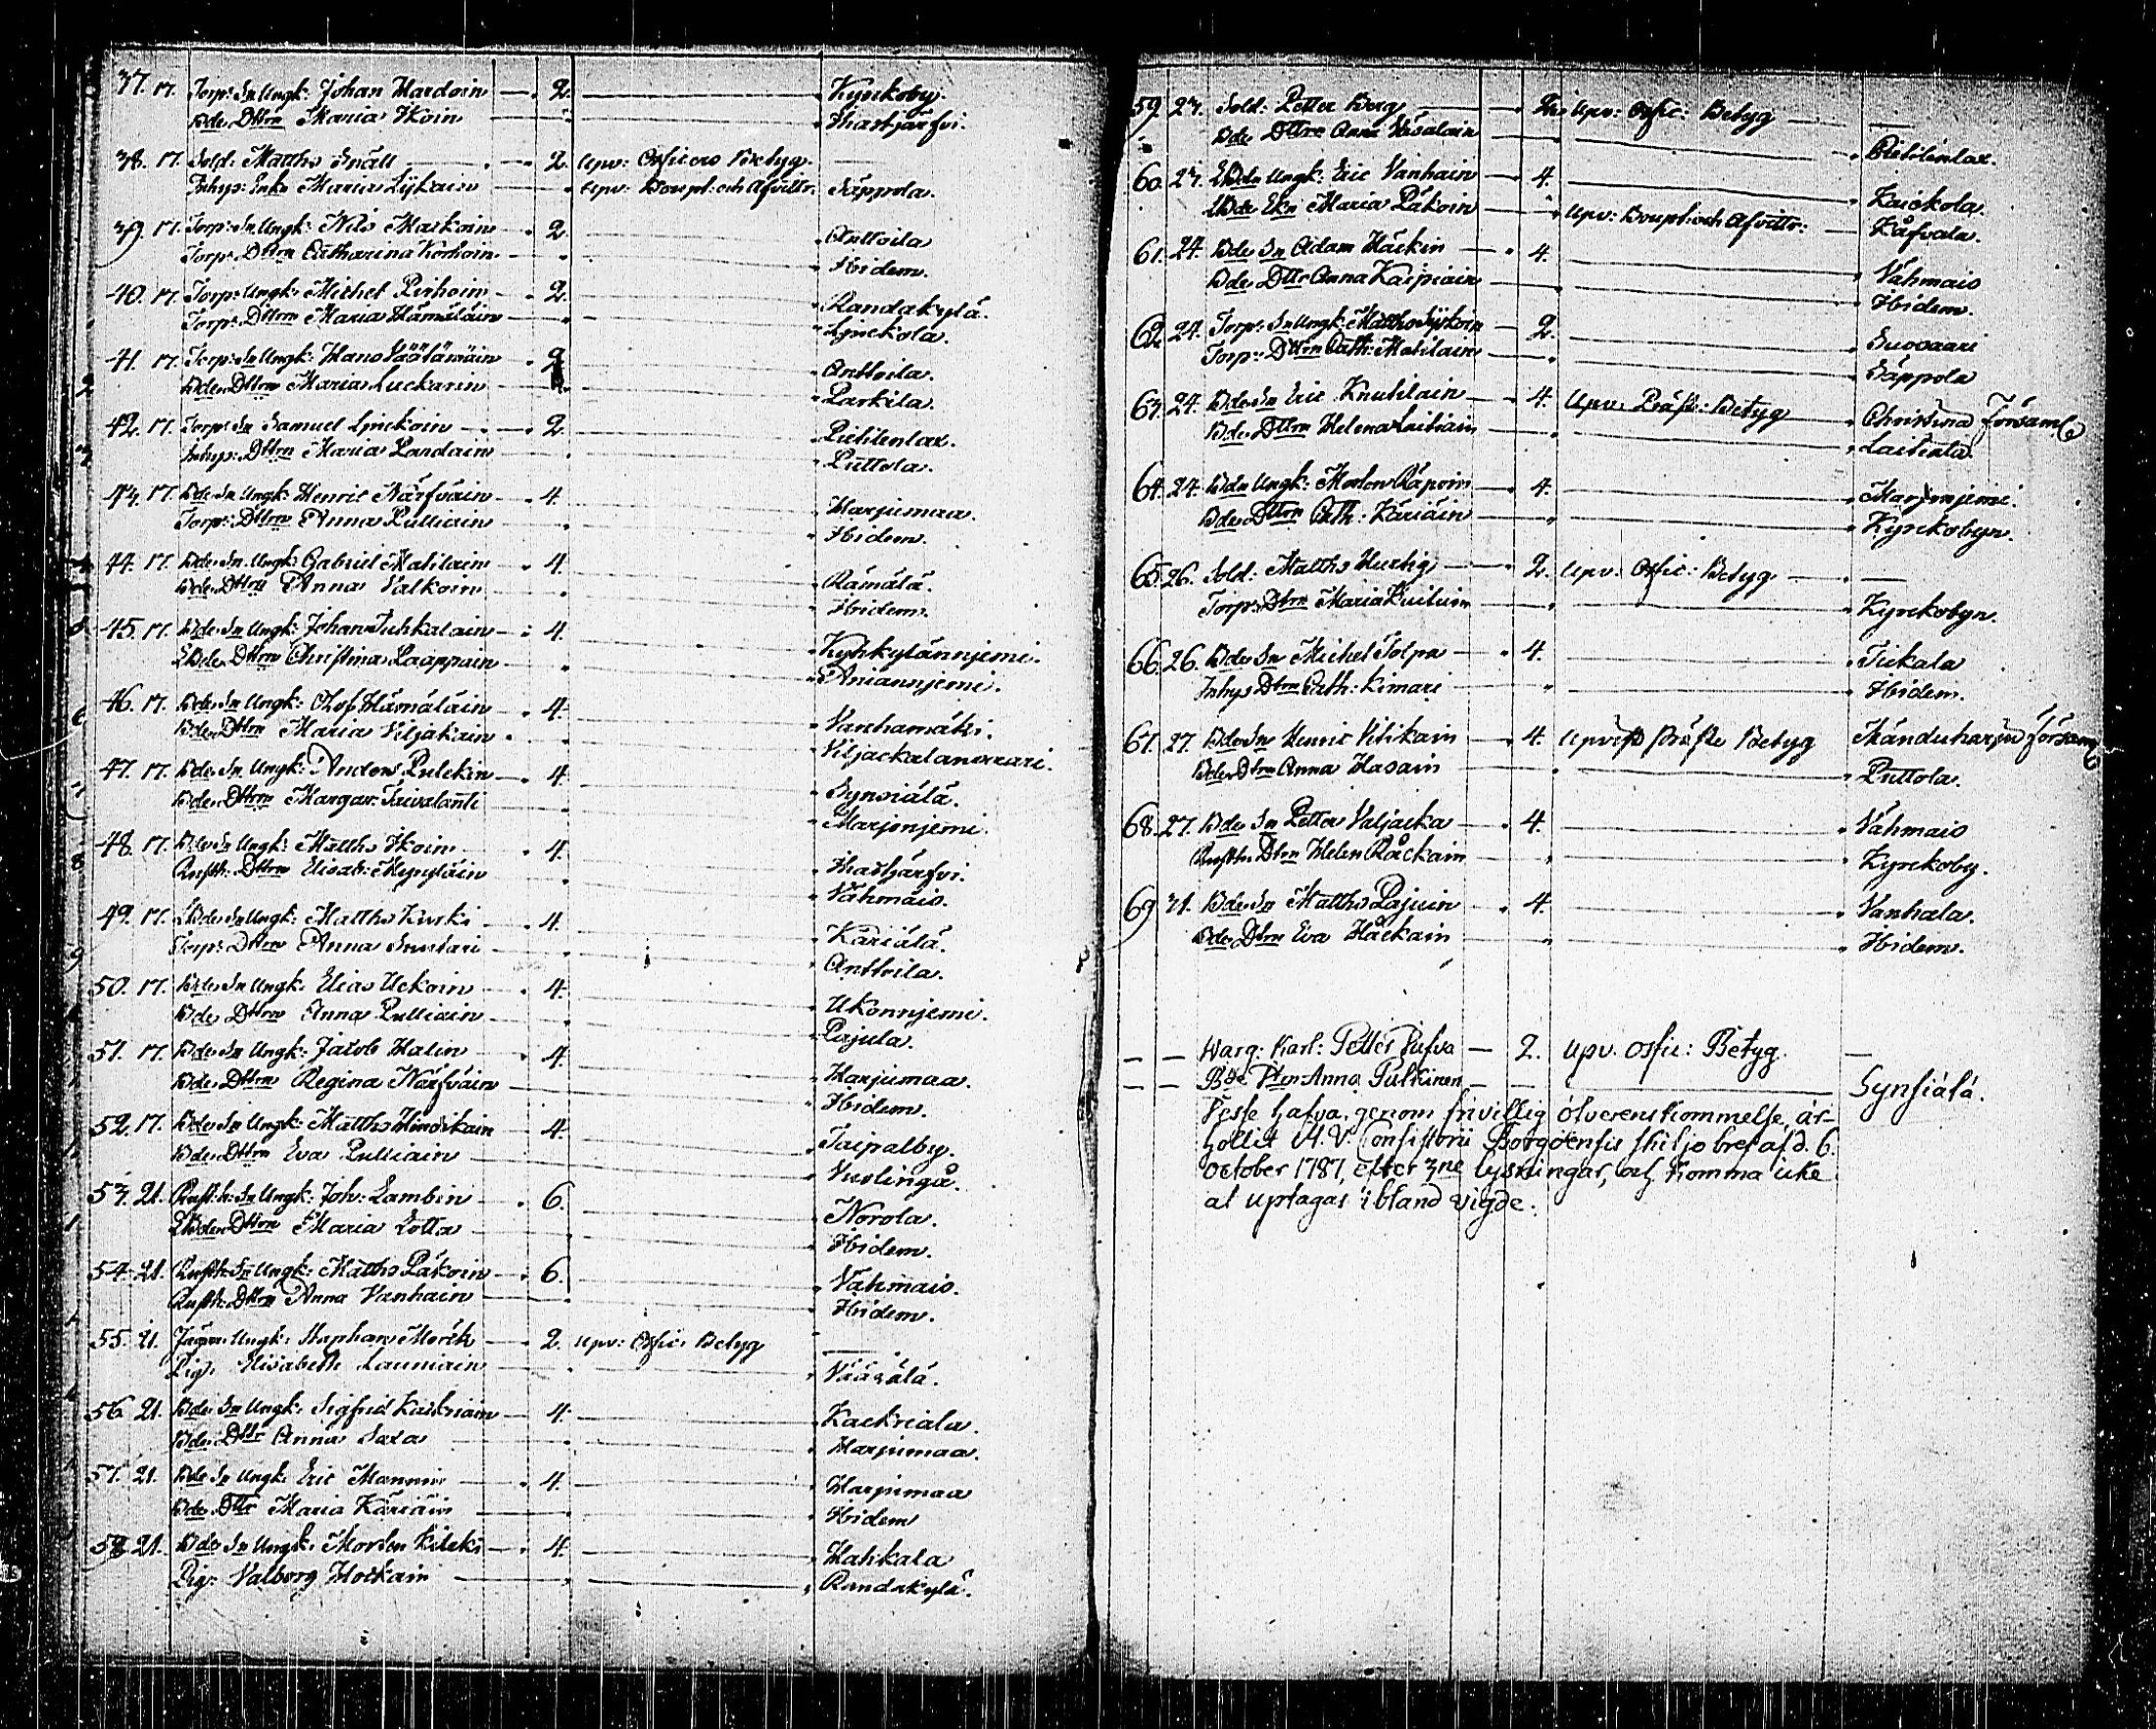 37. 17. Torp: Sn Ungk: Johan Hardoin — 2. — Kyrckoby.
Bde Dttrn Maria Ikoin — Hastjärfvi.
38. 17. Sold: Matths Snäll — 2. upv: Officers Betyg. —
Inhys: Enk: Maria Lÿkain — upv: Boupt: och Afvittr: Säppola.
39. 17. Torp: Sn Ungk: Nils Maskoin — 2. — Anttoila
Torp: Dttrn Catharina Korhoin — Ibidem.
40. 17. Torp: Ungk: Michel Pirhoin — 2. — Randakylä.
Torp: Dttrn Maria Hämäläin — Lyrckola.
41. 17. Torp: Sn Ungk: Hans Säätämäin — 2 — Anttoila.
Bde Dttrn Maria Luckarin — Parkila.
42. 17. Torp: Sn Samuel Lyrckoin — 2 — Pietilenlax.
Inhys: Dttrn Maria Landain — Puttola.
43. 17. Bde Sn Ungk: Henric Närfväin — 4. — Harjumaa.
Torp: Dttrn Anna Pulliain — Ibidem.
44. 17. Bde Sn Ungk: Gabriel Matilain — 4. — Rämälä.
Bde Dttrn Anna Valkoin — Ibidem.
45. 17. Bde Sn Ungk: Johan Tuhkalain — 4. — Kyhkylännjemi.
LBde Dttrn Christina Laappain — Aniannjemi.
46. 17. Bde Sn Ungk: Olof Hämäläin — 4. — Vanhamäki.
Bde Dttrn Maria Viljakain — Viljackalansaari.
47. 17. Bde Sn Ungk: Anders Pulckin — 4. — Synsiälä.
Bde Dttrn Margar: Taivalanti — Marjonjemi.
48. 17. Bde Sn Ungk: Matths Ikoin — 4. — Hastjärfvi.
Rusth: Dttrn Elisab: Kynyläin — Vahmais.
49. 17. LBde Sn Ungk: Matths Kurki — 4. — Käriälä.
Torp: Dttrn Anna Smolari — Anttoila.
50. 17. Bde Sn Ungk: Elias Uckoin — 4. — Ukonnjemi.
Bde Dttrn Anna Pulliain — Pajula.
51. 17. Bde Sn Ungk: Jacob Halin — 4. — Harjumaa.
Bde Dttrn Regina Närfväin — Ibidem.
52. 17. Bde Sn Ungk: Matths Hindrikain — 4. — Taipalby.
Bde Dttrn Eva Pulliain — Vuolingå.
53. 21. Rusth: Sn Ungk: Joh: Lambin — 6. — Norola.
LBde Dttrn Maria Lotta — Ibidem.
54. 21. Rusth: Sn Ungk: Matths Päkoin — 6. — Vahmais.
Rusth: Dttrn Anna Vanhain — Ibidem.
55. 21. Jägar: Ungk: Staphan Mörck — 2. upv: Offic: Betyg —
Pig: Elisabeth Launiain — Väärälä.
56. 21. Bde Sn Ungk: Sigfrid Kaukiain — 4. — Kackriala.
Bde Dttr Anna Saxa — Harjumaa.
57. 21. Bde Sn Ungk: Eric Mannin — 4. — Harjumaa
Bde Dttr Maria Käriäin — Ibidem
58. 21. Bde Sn Ungk: Morten Kileki — 4. — Hahkala
Pig: Valborg Hockain — Randakylä.
59. 23. Sold: Petter Berg — upv: Offic: Betyg —
Bde Dttrn Anna Väsalain — Pietilenlax.
60. 23. LBde Ungk: Eric Vanhain — 4. — Kaickola.
LBde Ekn Maria Päkoin — upv: Boupt: och Afvittr: — Kåfvala.
61. 24. Bde Sn Adam Häckin — 4. — Vahmais
Bde Dttr Anna Kaipiain — Ibidem.
62. 24. Torp: Sn Ungk: Matths Sÿikoin — 2. — Suosaari
Torp: Dttrn Cath: Matilain — Säppola
63. 24. Bde Sn Eric Knutilain — 4. Upv: Präste: Betyg — Christina Församl
Bde Dttrn Helena Laitiain — Laitiala.
64. 24. Bde Ungk: Morten Räpoin — 4. — Marjonjemi.
Bde Dttrn Cath: Käriäin — Kyrckobyn.
65. 26. Sold: Matths Hurtig — 2. upv: Offic: Betyg — —
Torp: Dttrn Maria Kuiluin — Kyrckobyn.
66. 26. Bde Sn Michel Tolpa — 4. — Tuckala
Inhys Dttrn Cath: Kimari — Ibidem.
67. 27. Bde Sn Henric Vitikain — 4. upvist Präste Betyg Mänduharju församl
Bde Dttrn Anna Hasain — Puttola.
68. 27. Bde Sn Petter Valjacka — 4. — Vahmais
Rusth: Dttrn Helen Råckain — Kyrckoby.
69. 31. Bde Sn Matths Pajuin — 4. — Vanhala.
Bde Dttrn Eva Håckain — Ibidem.
— — Warg: Karl: Petter Pufva — 2. upv. Offic: Betyg. —
— — Bde Dttr Anna Pulkinen — — Synsiälä.
Desse hafva, genom frivillig öfverenskommelse, är-
hållit M. V. Consistorii Borgöensis skiljobref af d. 6.
October 1787, efter 3ne lysningar, och komma icke
at uptagas ibland vigde.